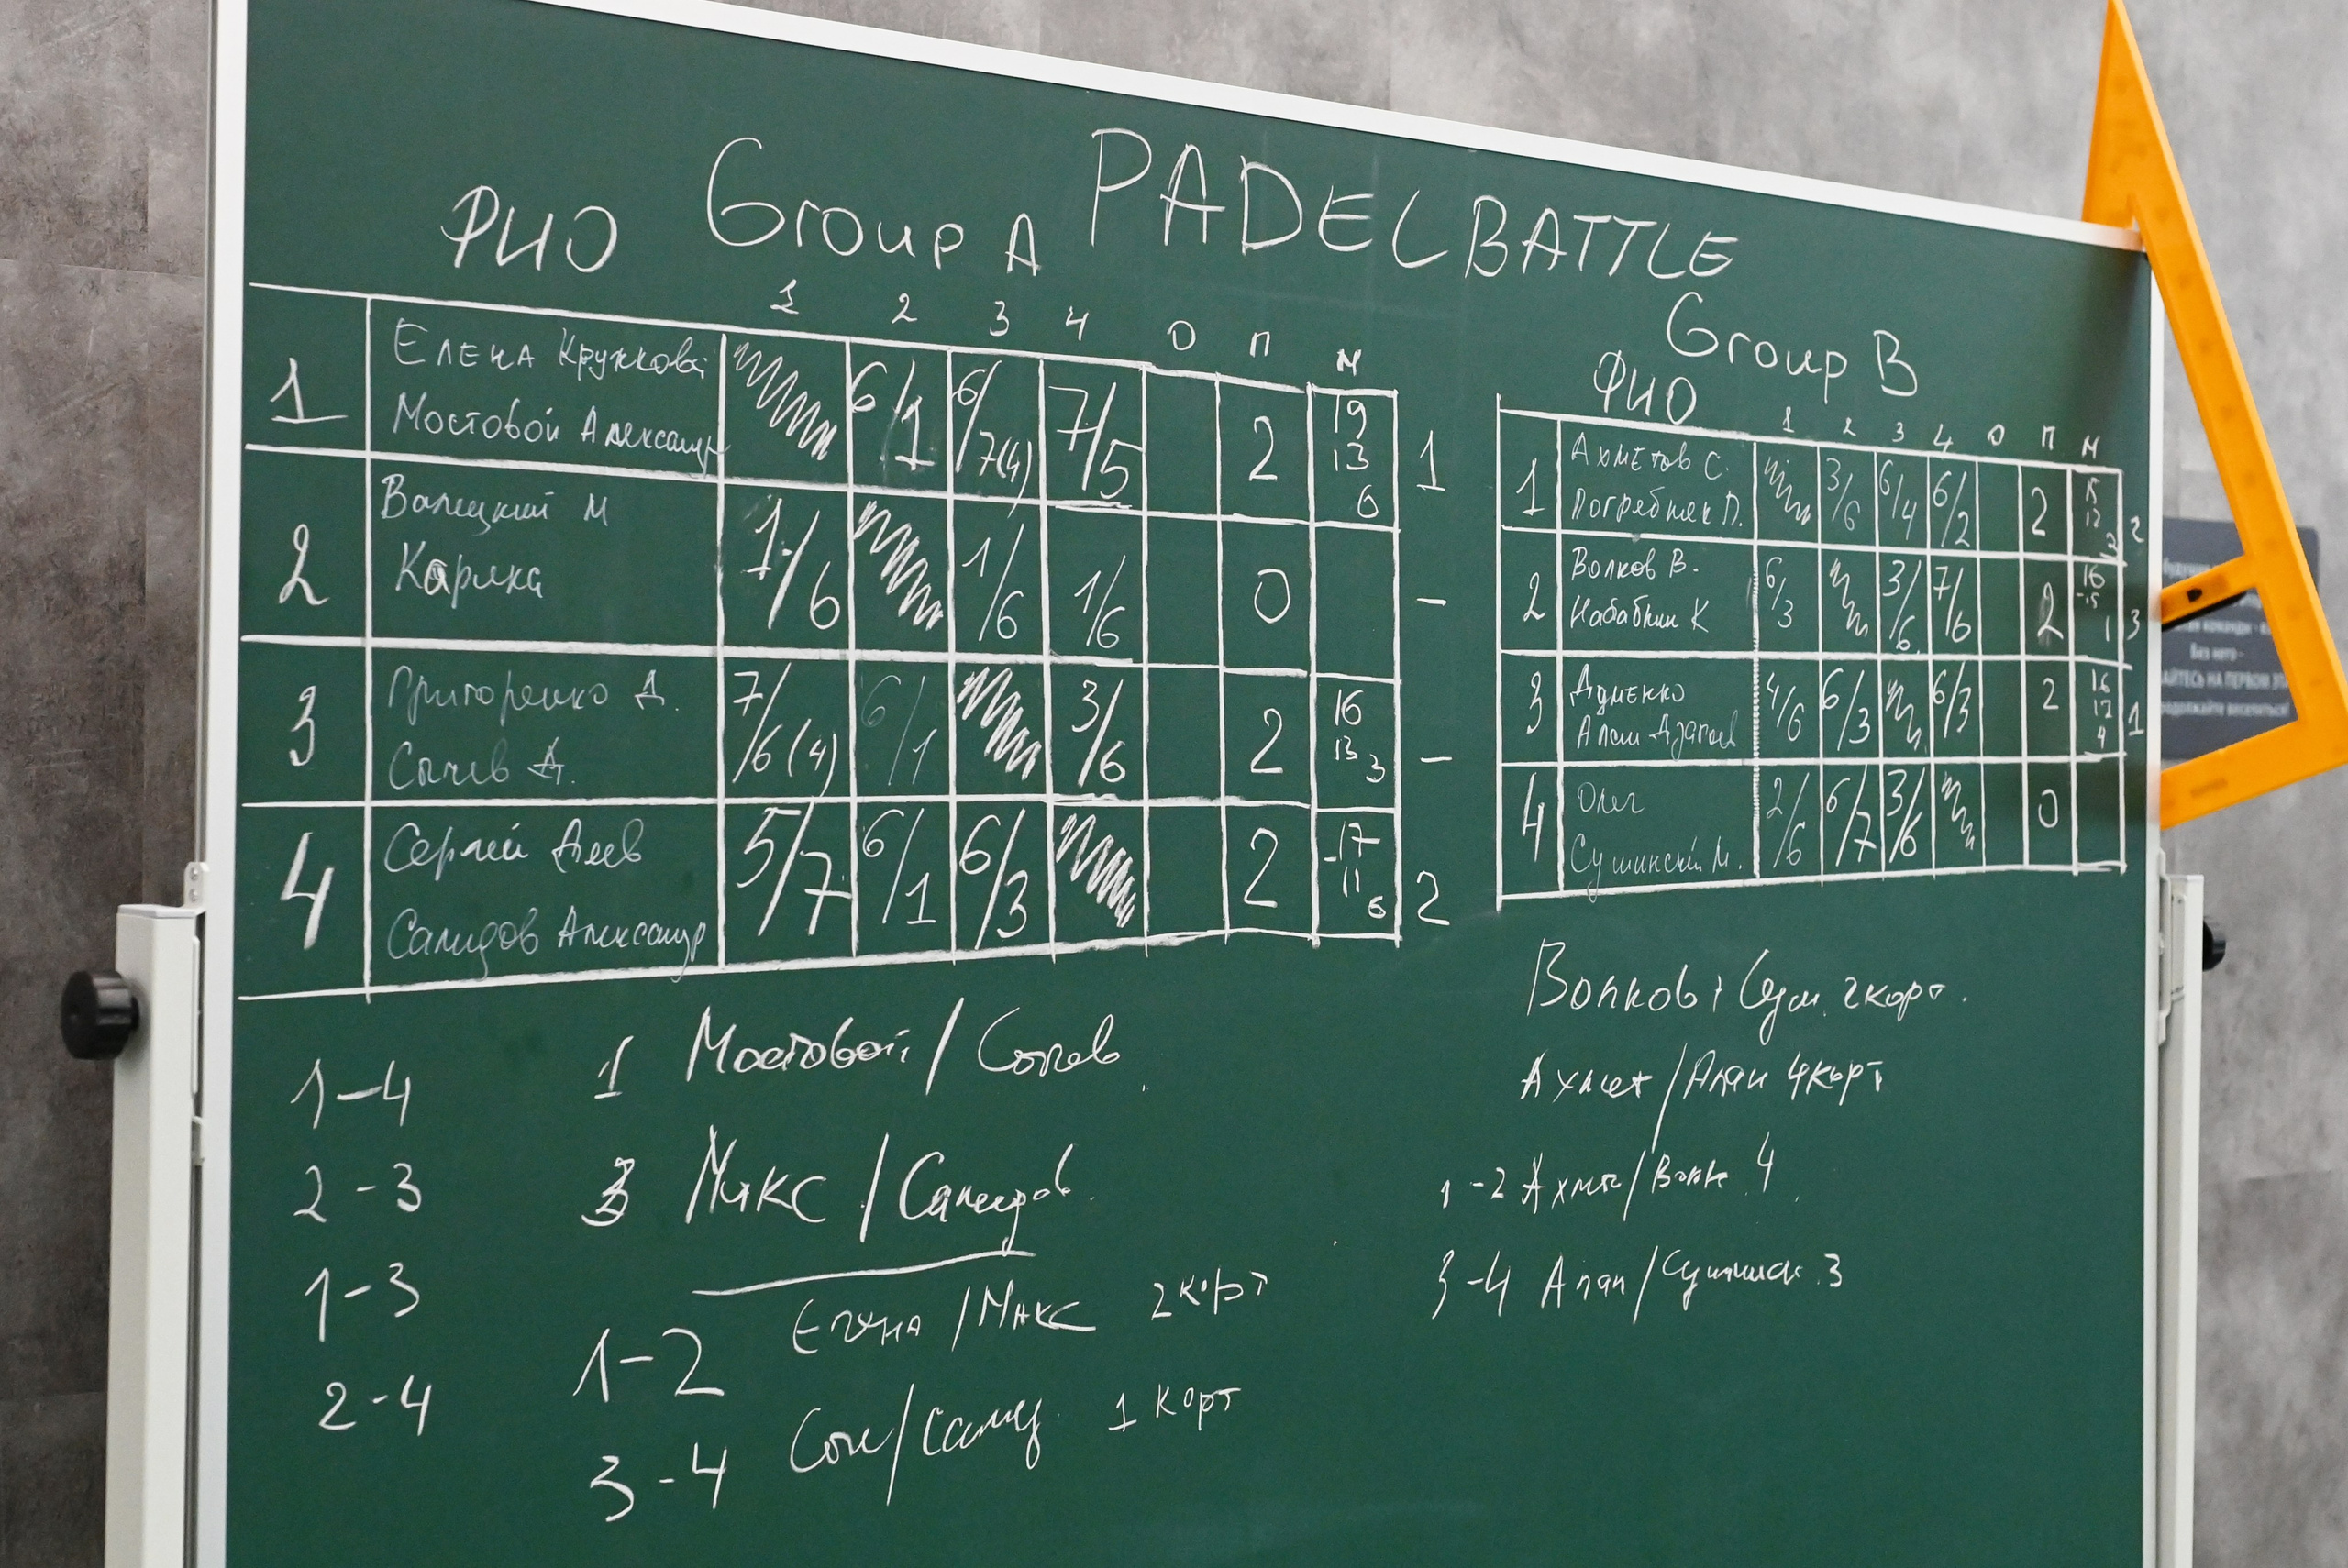 ФИО Group A PADEL BATTLE
1 2 3 4 О П М
1 Елена Кружкова
Мостовой Александр
6/1 6/7(4) 7/5 2 19 13 6 1
2 Валецкий М
Карина
1/6 1/6 1/6 0 –
3 Григоренко Д.
Сычев А.
7/6(4) 6/1 3/6 2 16 13 3 –
4 Сергей Алев
Салидов Александр
5/7 6/1 6/3 2 -17 11 6 2
Group B
ФИО
1 2 3 4 О П М
1 Ахметов С.
Погребняк П.
3/6 6/4 6/2 2 15 12 2 2
2 Волков В.
Набабкин К
6/3 3/6 7/6 2 16 -15 1 3
3 Думенко
Алан Дзагоев
4/6 6/3 6/3 2 16 12 4 1
4 Олег
Сушинский М.
2/6 6/7 3/6 0
1–4
2–3
1–3
2–4
1 Мостовой/Сычев
3 Микс/Салидов.
1–2 Елена/Макс 2 корт
3–4 Соч/Салид 1 корт
Волков + Суш. 2 корт.
Ахмет/Алан 4 корт
1–2 Ахмет/Волк 4
3–4 Алан/Сушинск. 3